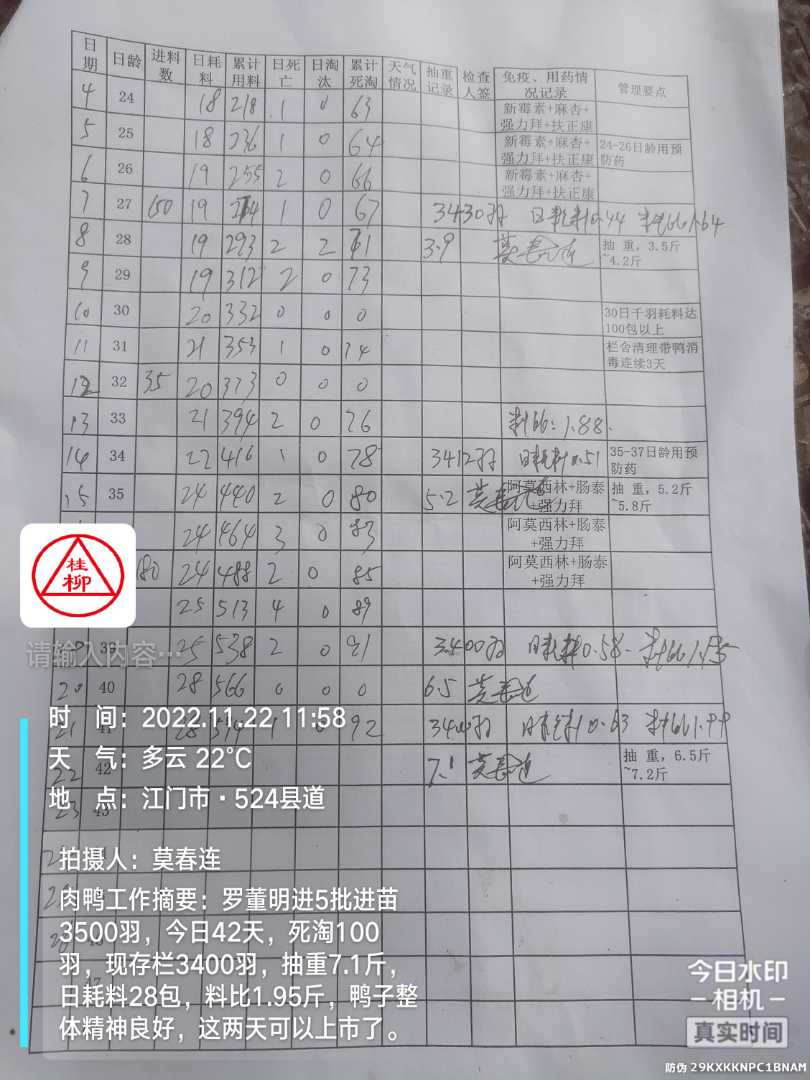 日期 日龄 进料数 日耗料 累计用料 日死亡 日淘汰 累计死淘 天气情况 抽重记录 检查人签 免疫、用药情况记录 管理要点
4 24 18 218 1 0 63 新霉素+麻杏+强力拜+扶正康
5 25 18 236 1 0 64 新霉素+麻杏+强力拜+扶正康 24-26日龄用预防药
6 26 19 255 2 0 66 新霉素+麻杏+强力拜+扶正康
7 27 150 19 274 1 0 67 3430羽 日耗料0.44 料比1.64
8 28 19 293 2 2 71 3.9 莫春连 抽重，3.5斤~4.2斤
9 29 19 312 2 0 73
10 30 20 332 0 0 0 30日千羽耗料达100包以上
11 31 21 353 1 0 74 栏舍清理带鸭消毒连续3天
12 32 35 20 373 0 0 0
13 33 21 394 2 0 76 料比：1.88.
14 34 22 416 1 0 78 3412羽 日耗料0.51 35-37日龄用预防药
15 35 24 440 2 0 80 5.2 莫春连 阿莫西林+肠泰+强力拜 抽重，5.2斤~5.8斤
24 464 3 0 83 阿莫西林+肠泰+强力拜
180 24 488 2 0 85 阿莫西林+肠泰+强力拜
25 513 4 0 89
39 25 538 2 0 91 3400羽 日耗料0.58
20 40 28 566 0 0 0 6.5 莫春连
21 41 28 594 1 0 92 日耗料0.83 料比1.99
22 42 7.1 莫春连 抽重，6.5斤~7.2斤
23 43
桂柳
请输入内容…
时 间：2022.11.22 11:58
天 气：多云 22℃
地 点：江门市·524县道
拍摄人：莫春连
肉鸭工作摘要：罗董明进5批进苗
3500羽，今日42天，死淘100
羽，现存栏3400羽，抽重7.1斤，
日耗料28包，料比1.95斤，鸭子整
体精神良好，这两天可以上市了。
今日水印
-相机-
真实时间
防伪 29KXKKNPC1BNAM